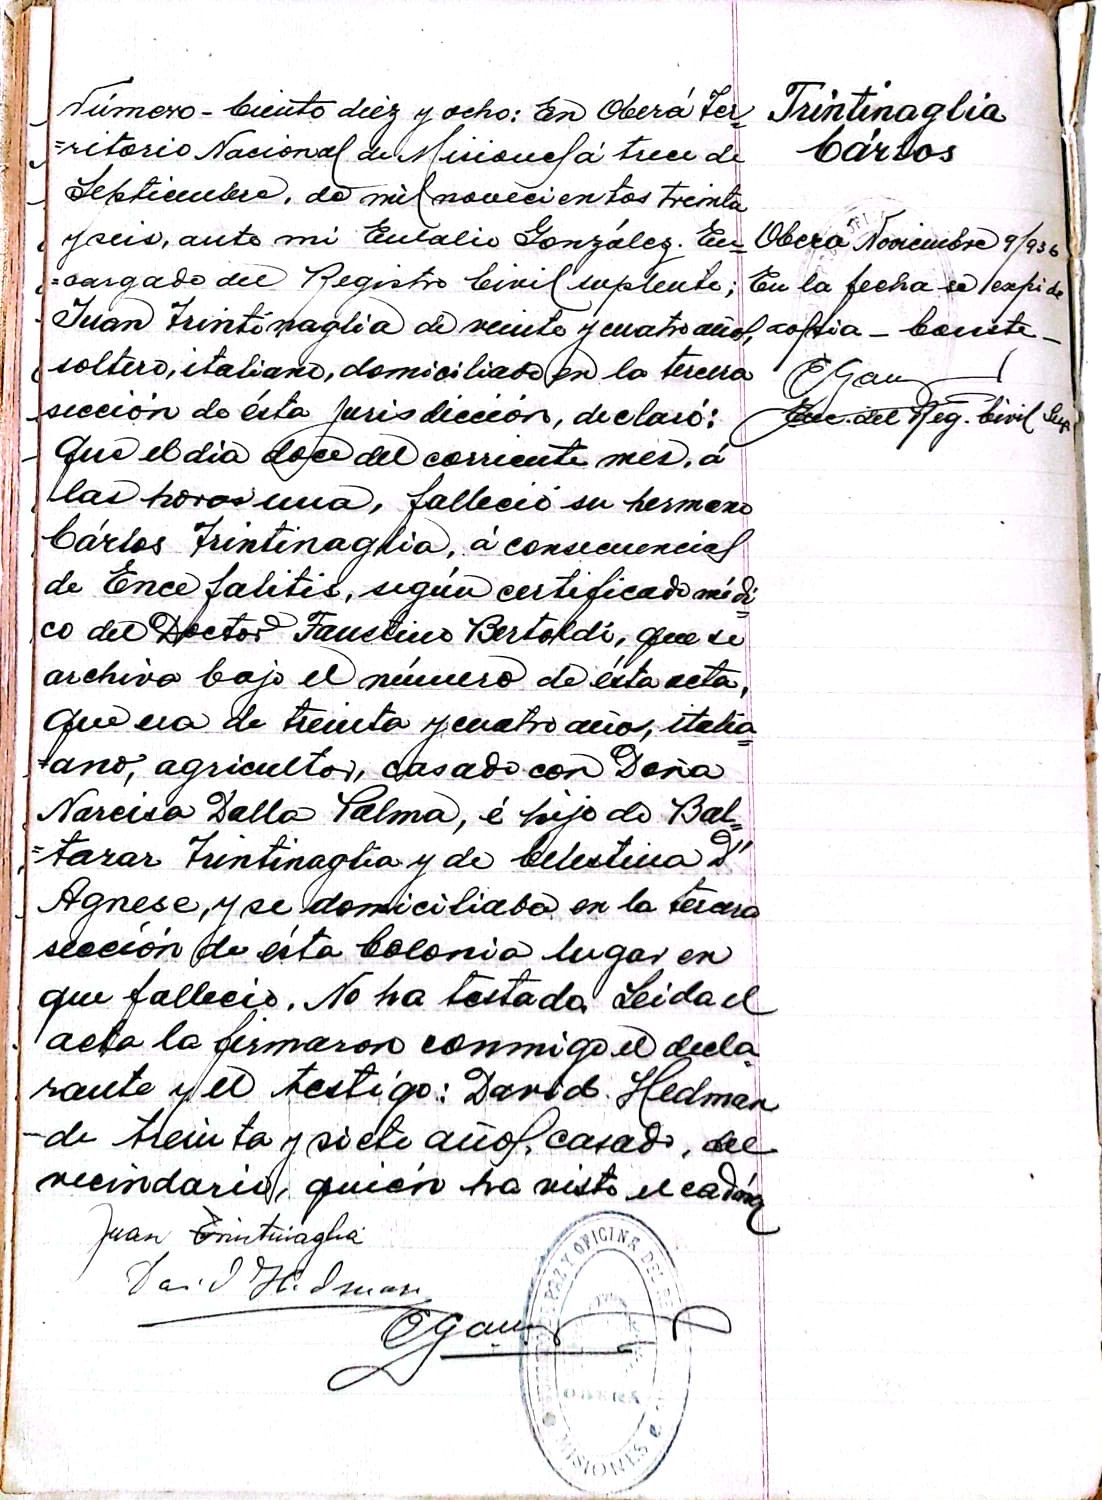 Número - Ciento diez y ocho: En Oberá Ter-
=ritorio Nacional de Misiones á trece de
Septiembre, de mil novecientos treinta
y seis, ante mi Eulalio González. En-
=cargado del Registro Civil suplente;
Juan Trintinaglia de veinte y cuatro años,
soltero, italiano, domiciliado en la tercera
sección de ésta jurisdicción, declaró:
Que el dia doce del corriente mes, á
las horas una, falleció su hermano
Cárlos Trintinaglia, á consecuencias
de Encefalitis, según certificado médi
co del Doctor Faustino Bertoldi, que se
archiva bajo el número de ésta acta,
que era de treinta y cuatro años, itali=
=ano, agricultor, casado con Doña
Narcisa Dalla Palma, é hijo de Bal=
=tazar Trintinaglia y de Celestina D'
Agnese, y se domiciliaba en la tercera
sección de ésta Colonia lugar en
que fallecio. No ha testado. Leida el
acta la firmaron conmigo el decla-
rante y el testigo: David Hedman
de treinta y siete años, casado, del
vecindario, quién ha visto el cadáver
Juan Trintinaglia
David Hedman
EGon
Trintinaglia
Cárlos
Obera Noviembre 9/936
En la fecha se expide
copia - Conste -
EGon
Enc. del Reg. Civil Sup.
OFICINA DEL RE
OBERA
MISIONES